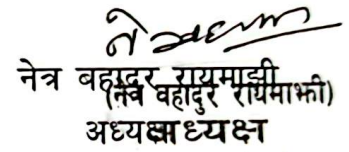 नेत्र बहादुर रायमाझी
(नेत्र वहादुर रायमाझी)
अध्यक्ष